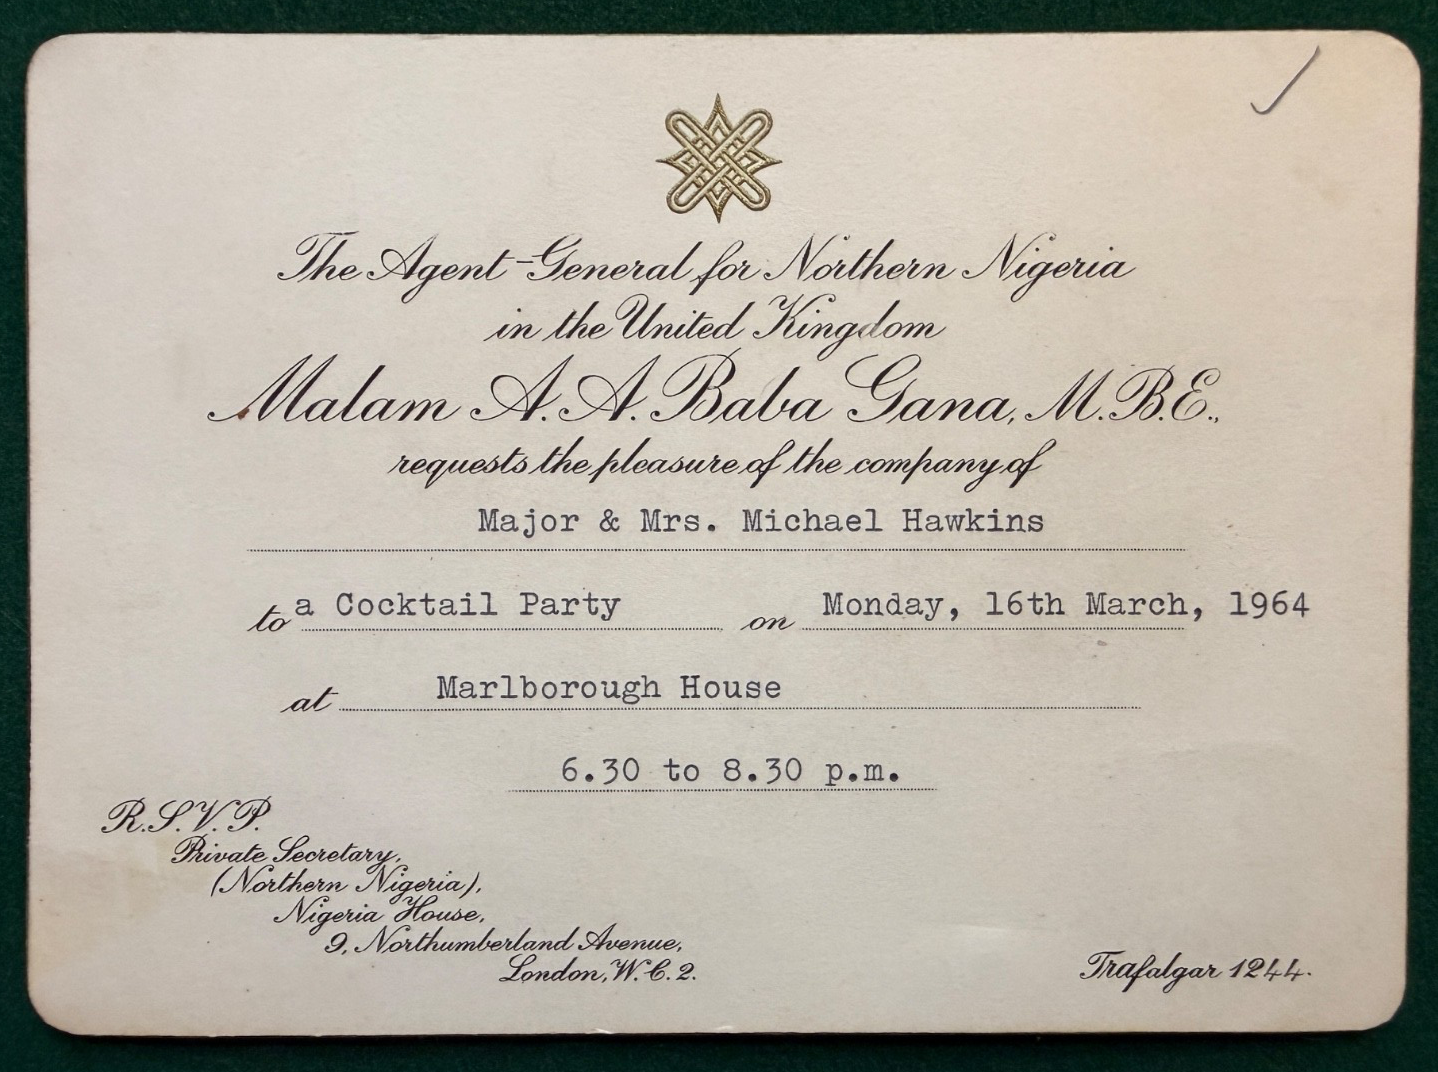 The Agent-General for Northern Nigeria
in the United Kingdom
Malam A. A. Baba Gana, M.B.E.,
requests the pleasure of the company of
Major & Mrs. Michael Hawkins
to a Cocktail Party on Monday, 16th March, 1964
at Marlborough House
6.30 to 8.30 p.m.
R.S.V.P.
Private Secretary,
(Northern Nigeria),
Nigeria House,
9, Northumberland Avenue,
London, W.C.2.
Trafalgar 1244.